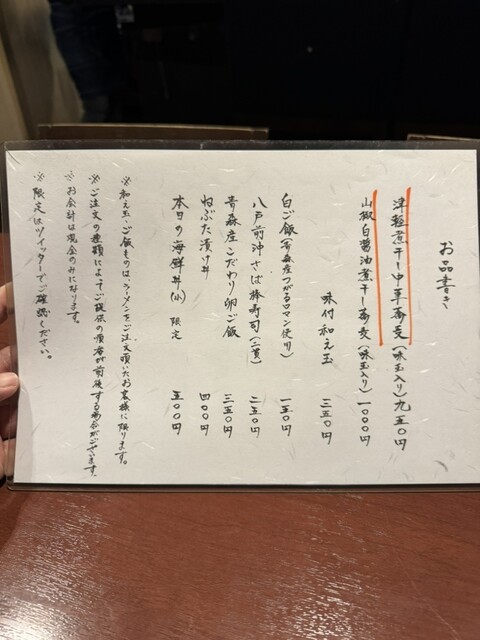 お品書き
津軽煮干し中華蕎麦(味玉入り)九五〇円
山椒白醤油煮干し蕎麦(味玉入り)一〇〇〇円
味付和え玉 三五〇円
白ご飯(青森産つがるロマン使用) 一五〇円
八戸前沖さば棒寿司(二貫) 二五〇円
青森産こだわり卵ご飯 三五〇円
ねぶた漬け丼 四〇〇円
本日の海鮮丼(小) 限定 五〇〇円
※和え玉、ご飯ものはラーメンをご注文頂いたお客様に限ります。
※ご注文の種類によってご提供の順番が前後する場合がございます。
※お会計は現金のみになります。
※限定はツイッターでご確認ください。